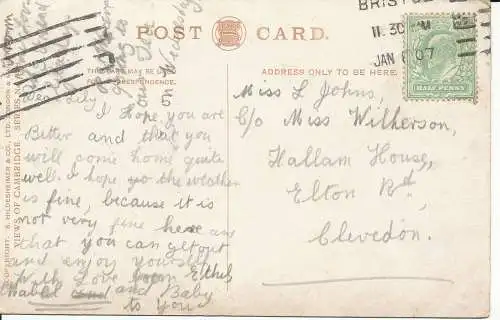 POST CARD.
THIS CARD MAY BE
CORRESPONDENCE.
ADDRESS ONLY TO BE HERE.
BRISTOL
11.30 M
JAN 07
HALF PENNY
5
Dear Lily
I Hope you are
Better and that you
will come home quite
well. I hope yo the weather
is fine, because it is
not very fine here any
that you can get out
and enjoy yourself
With Love from Ethel
Mabel and and Baby
to you
Miss L Johns,
C/o Miss Wilkerson,
Hallam House,
Elton Rd,
Clevedon.
COPYRIGHT. S. HILDESHEIMER & CO., LTD. LONDON &
VIEWS OF CAMBRIDGE. SERIES
going to
our
on Wednesday